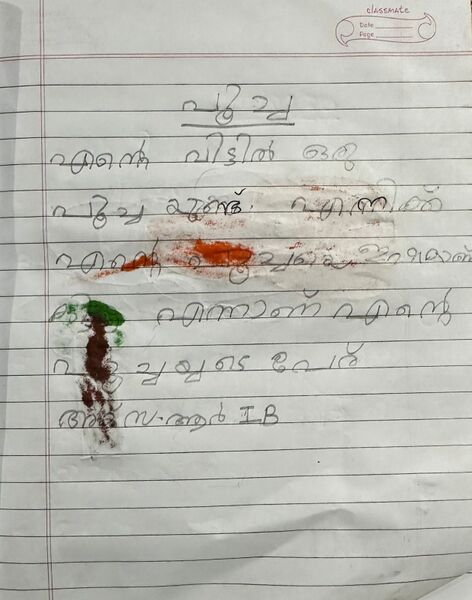 classmate
Date
Page
പൂച്ച
എന്റെ വീട്ടിൽ ഒരു
പൂച്ച യുണ്ട്. എനിക്ക്
എന്റെ പൂച്ചയെ
എന്നാണ് എന്റെ
പൂച്ചയുടെ പേര്
ആർ IB